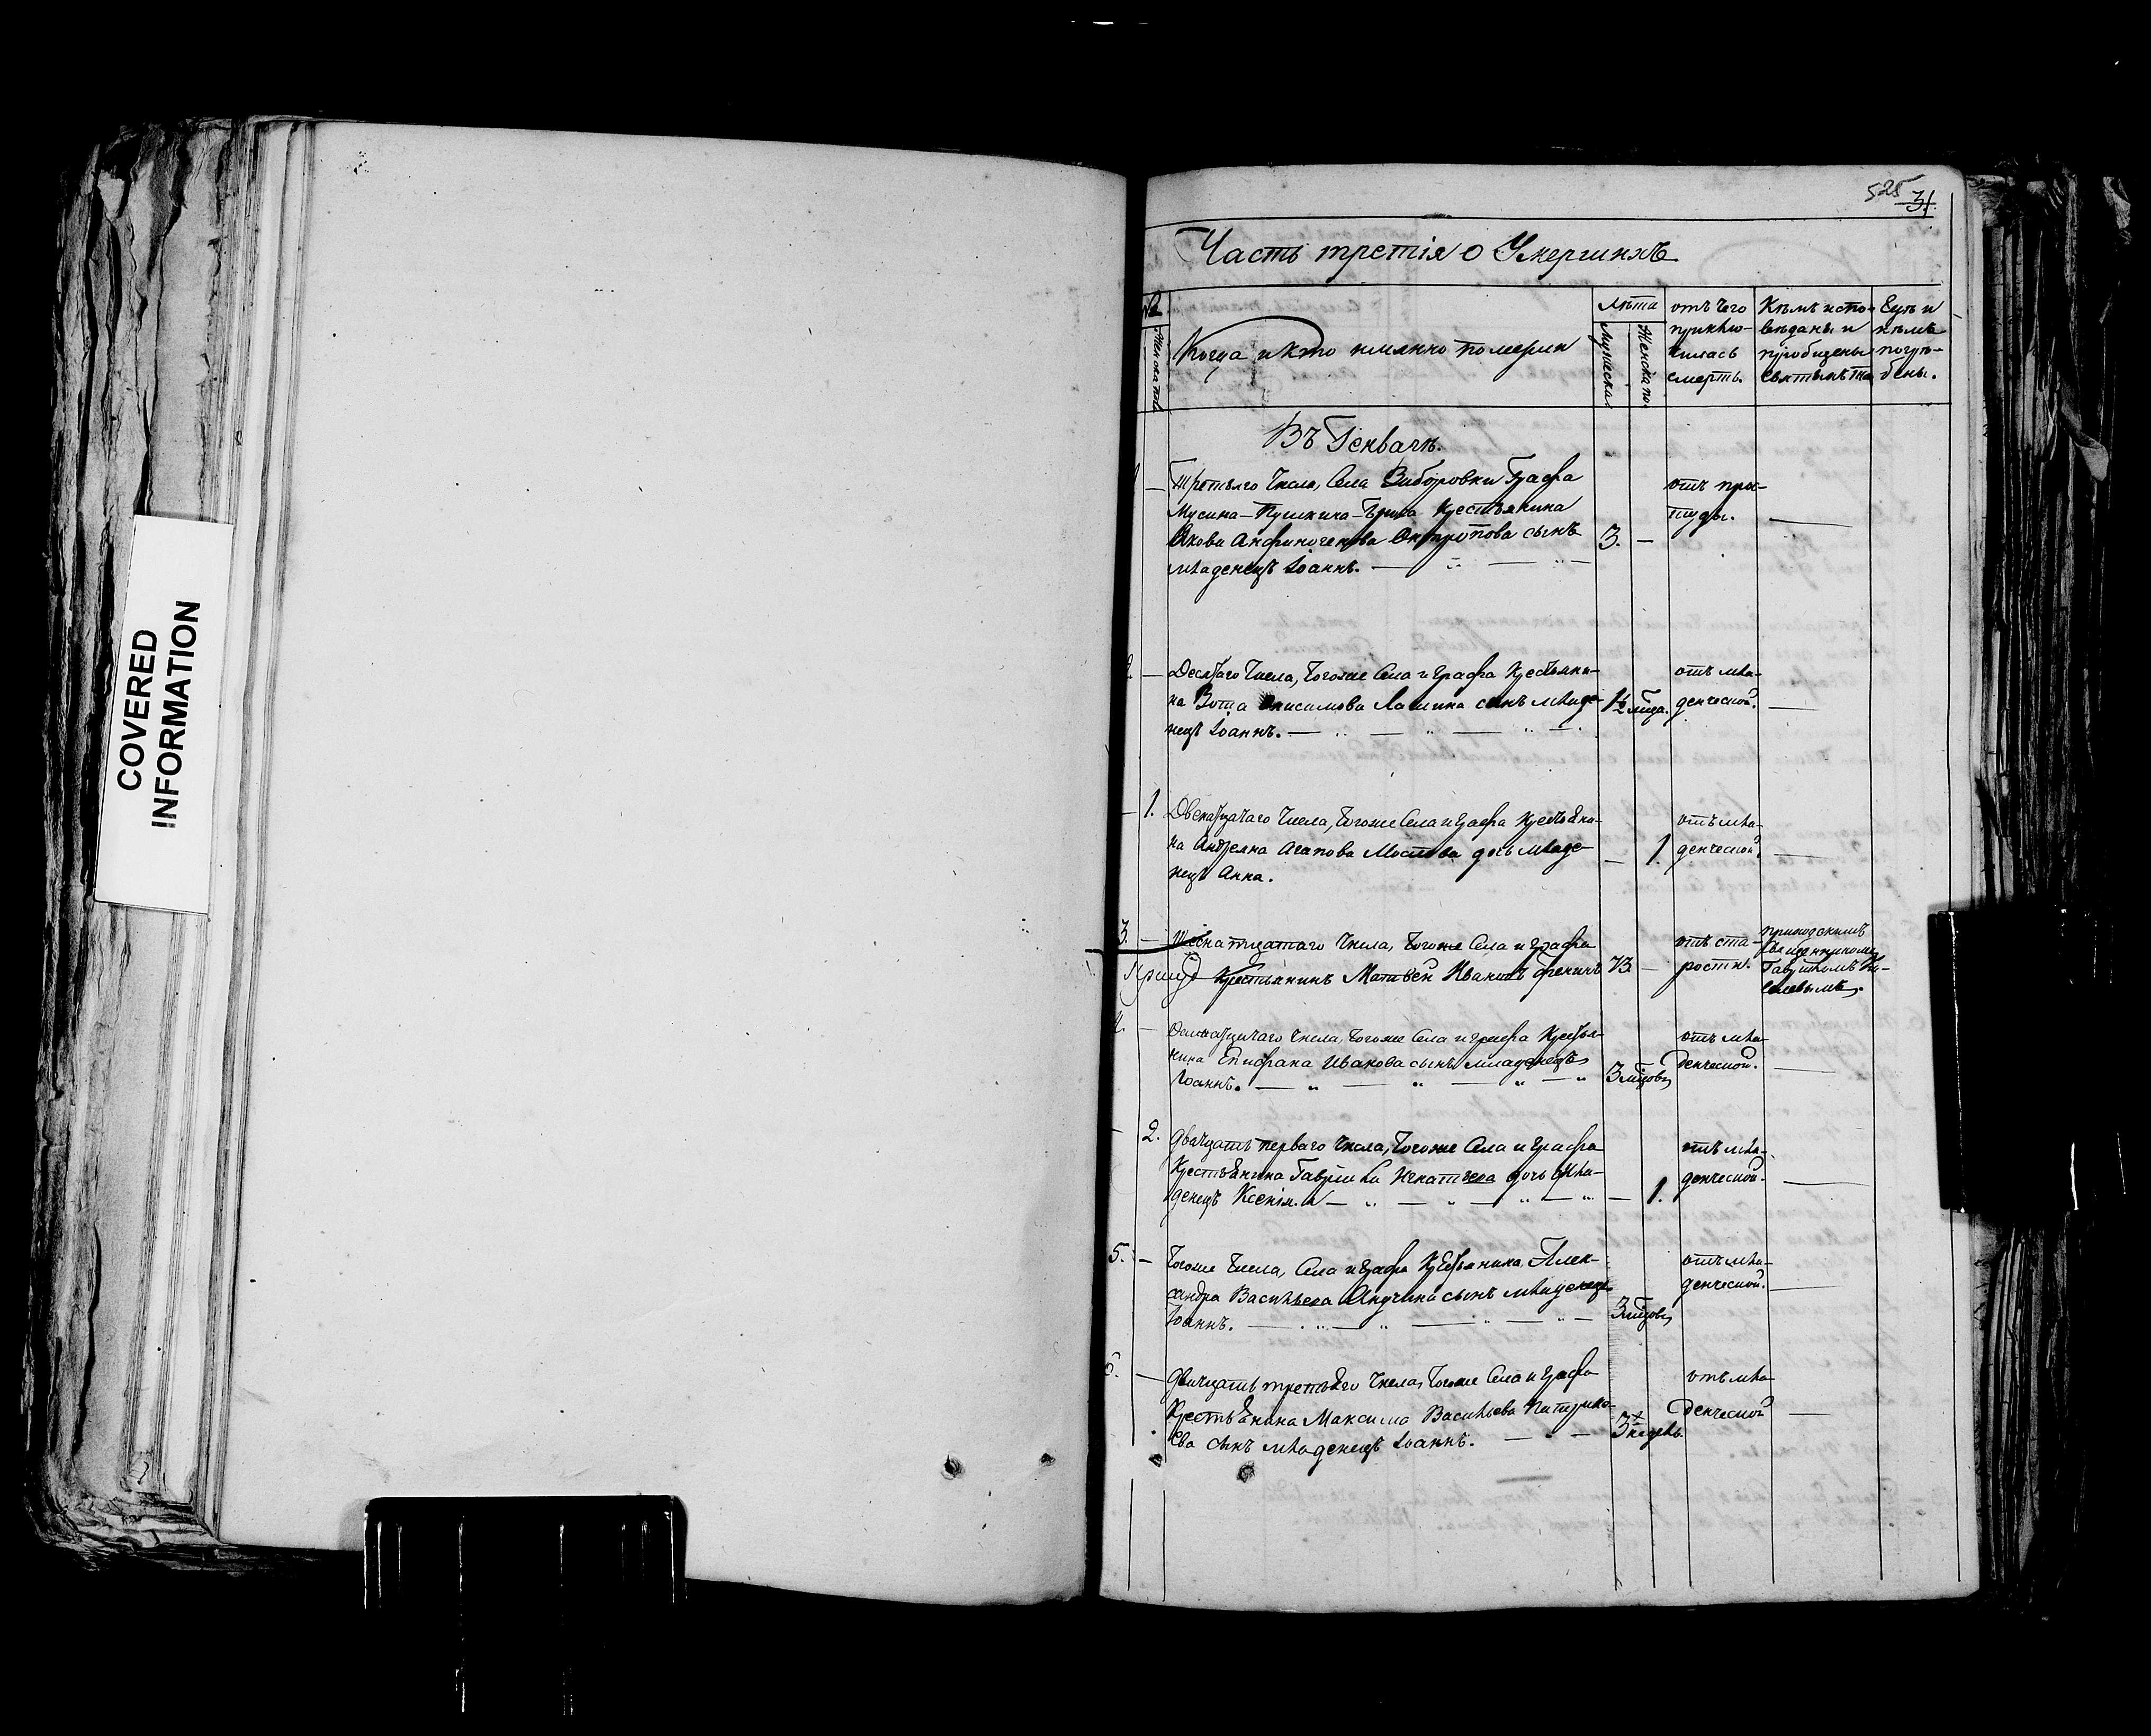 COVERED
INFORMATION
525
31.
Часть третія о Умершихъ
№
Женска пол
Когда и кто имянно померли
Лѣта
Мужеска.
Женска по.
отъ чего
приклю-
чилась
смерть.
Кѣмъ испо-
вѣданы и
пріобщены
Святыхъ та
Гдѣ и
кѣмъ
погре-
бены.
Въ Генварѣ.
— Третьяго Числа, Села Графа
Мусина-Пушкина-Брюса Крестьянина
Якова сынъ
младенецъ Іоаннъ.
3. —
отъ про-
студы.
2. — Десятаго Числа, тогоже Села и Графа Крестьяни-
на Анисимова сынъ младе-
нецъ Іоаннъ.
отъ мла-
денческой.
— 1. Двенатцатаго Числа, тогоже Села и Графа Крестьяни-
на Андреяна Агапова дочь младе-
нецъ Анна.
— 1.
отъ мла-
денческой.
3. — Числа, тогоже Села и Графа
Крестьянинъ Матвѣй Ивановъ
73. —
отъ ста-
рости.
приходскимъ
Священникомъ
Гавріиломъ
4. — Числа, тогоже Села и Графа Крестья-
нина Епифана Иванова сынъ младенецъ
Іоаннъ.
3 мѣсцовъ
отъ мла-
денческой.
— 2. Дватцать перваго Числа, тогоже Села и Графа
Крестьянина Гавріила Игнатьева дочь мла-
денецъ Ксенія.
— 1.
отъ мла-
денческой.
5. — Тогоже Числа, Села и Графа Крестьянина Алек-
сандра Васильева сынъ младенецъ
Іоаннъ.
3 мѣсцовъ
отъ мла-
денческой.
6. — Дватцать третьяго Числа, тогоже Села и Графа
Крестьянина Максима Васильева
ва сынъ младенецъ Іоаннъ.
3х недѣль
отъ мла
денческой